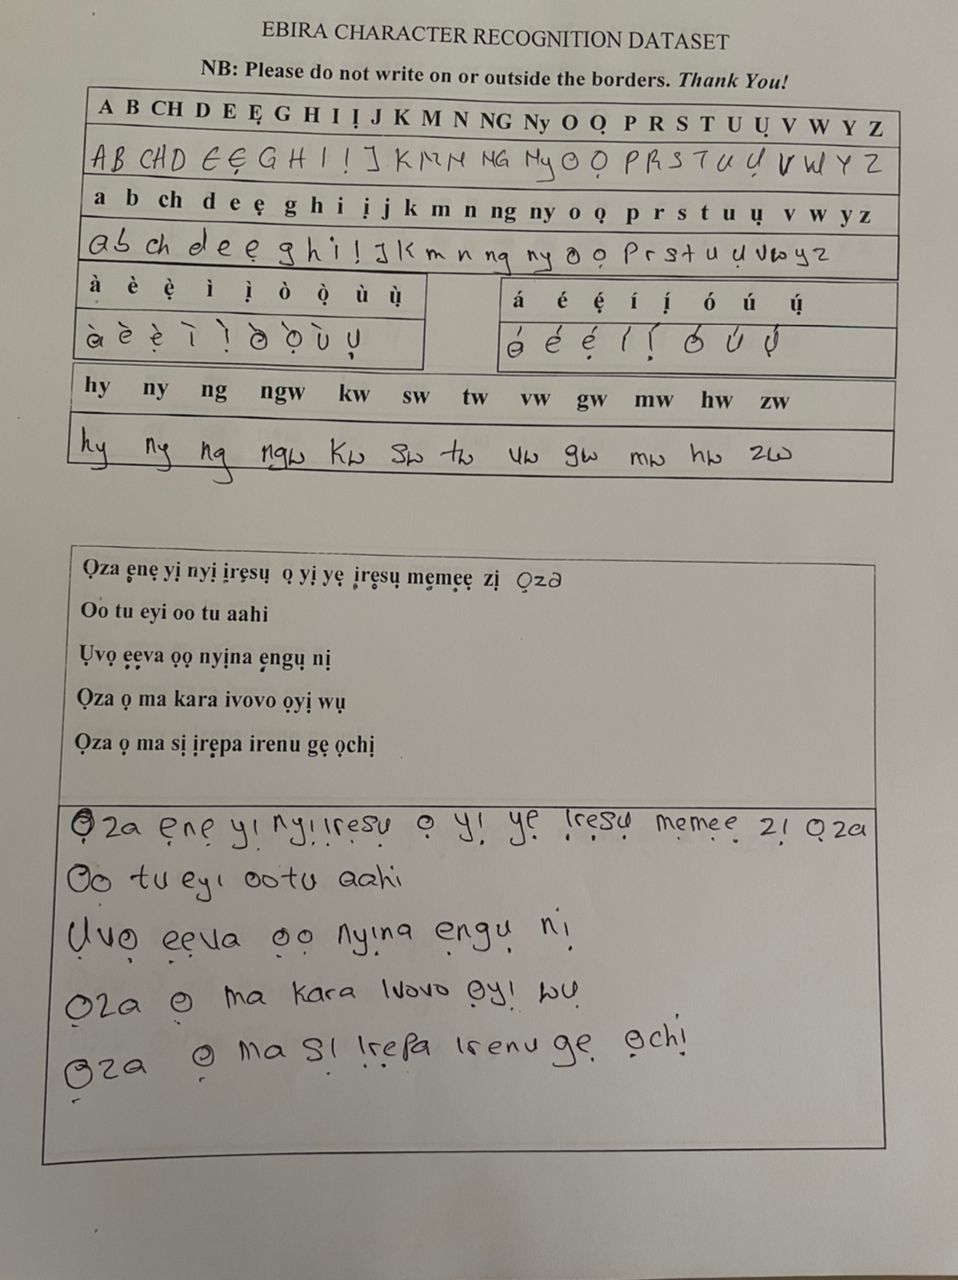 EBIRA CHARACTER RECOGNITION DATASET
NB: Please do not write on or outside the borders. Thank You!
A B CH D E Ẹ G H I Ị J K M N NG Ny O Ọ P R S T U Ụ V W Y Z
A B CH D E Ẹ G H I Ị J K M N NG Ny O Ọ P R S T U Ụ V W Y Z
a b ch d e ẹ g h i ị j k m n ng ny o ọ p r s t u ụ v w y z
a b ch d e ẹ g h i ị j k m n ng ny o ọ p r s t u ụ v w y z
à è ẹ̀ ì ị̀ ò ọ̀ ù ụ̀
à è ẹ̀ ì ị̀ ò ọ̀ ù ụ̀
á é ẹ́ í ị́ ó ú ụ́
á é ẹ́ í ị́ ó ú ụ́
hy ny ng ngw kw sw tw vw gw mw hw zw
hy ny ng ngw kw sw tw vw gw mw hw zw
Ọza ẹnẹ yị nyị ịrẹsụ ọ yị yẹ ịrẹsụ mẹmẹẹ zị ọza
Oo tu eyi oo tu aahi
Ụvọ ẹẹva ọọ nyịna ẹngụ nị
Ọza ọ ma kara ivovo ọyị wụ
Ọza ọ ma sị ịrẹpa irenu gẹ ọchị
Ọza ẹnẹ yị nyị ịresụ ọ yị yẹ ịrẹsụ mẹmẹẹ zị ọza
Oo tu eyi oo tu aahi
Ụvọ ẹẹva ọọ nyịna ẹngụ nị
Ọza ọ ma kara ivovo ọyị wụ
Ọza ọ ma sị ịrẹpa irenu gẹ ọchị